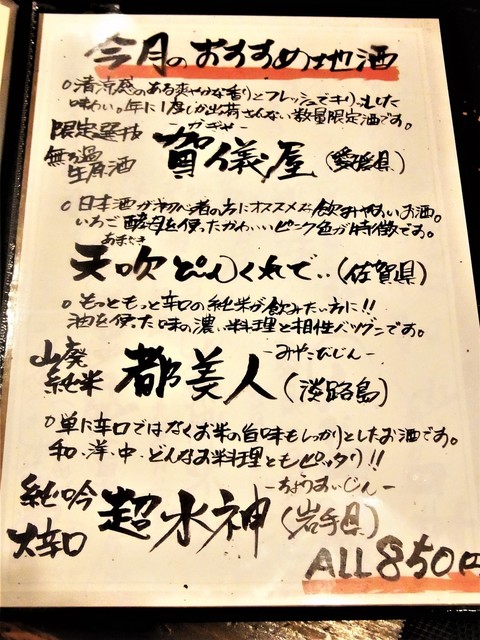 今月のおすすめ地酒
○清涼感のある爽やかな香りとフレッシュでキリッとした
味わい。年に1度しか出荷されない数量限定酒です。
限定選抜
無濾過
生原酒
かぎや
賀儀屋(愛媛県)
○日本酒が初心者の方にオススメな飲みやすいお酒。
いちご酵母を使ったかわいいピンク色が特徴です。
あまぶき
天吹 どんくれで‥(佐賀県)
○もっともっと辛口の純米が飲みたい方に!!
油を使った味の濃い料理と相性バツグンです。
山廃
純米
-みやこびじん-
都美人(淡路島)
○単に辛口ではなくお米の旨味もしっかりとしたお酒です。
和、洋、中、どんなお料理ともピッタリ!!
純吟
大辛口
-ちょうすいじん-
超水神(岩手県)
ALL850円